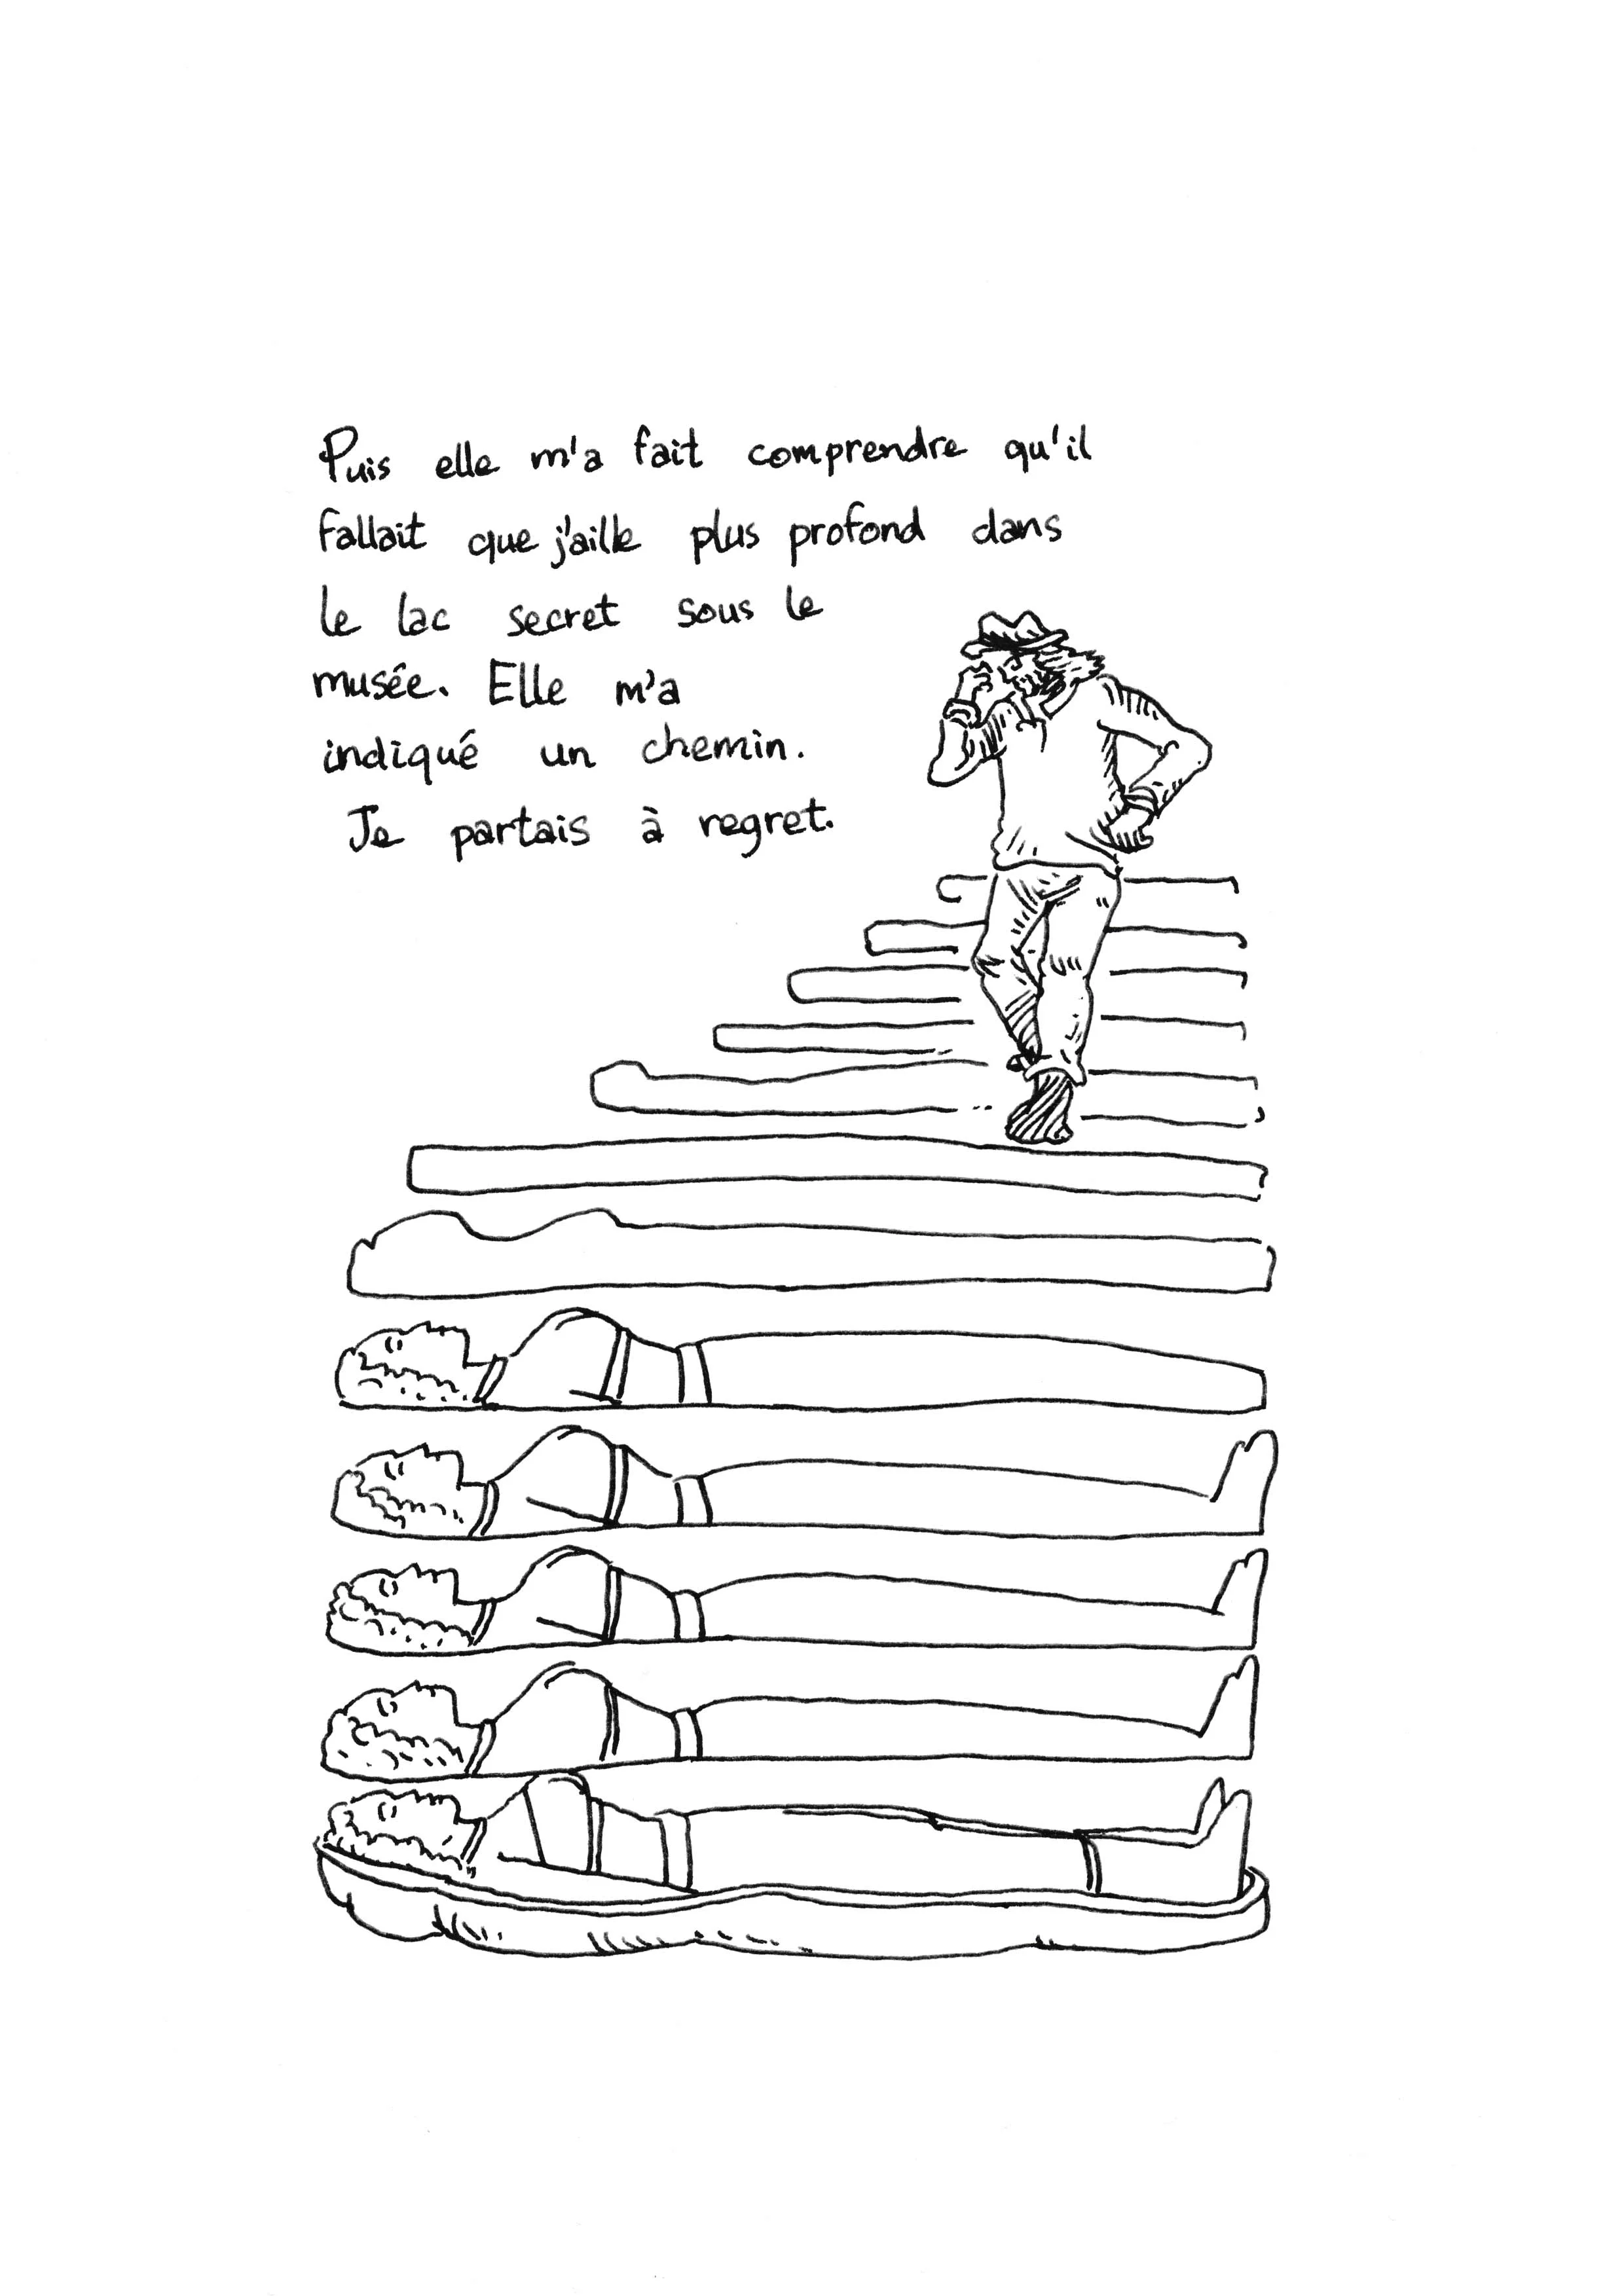 Puis elle m'a fait comprendre qu'il
fallait que j'aille plus profond dans
le lac secret sous le
musée. Elle m'a
indiqué un chemin.
Je partais à regret.